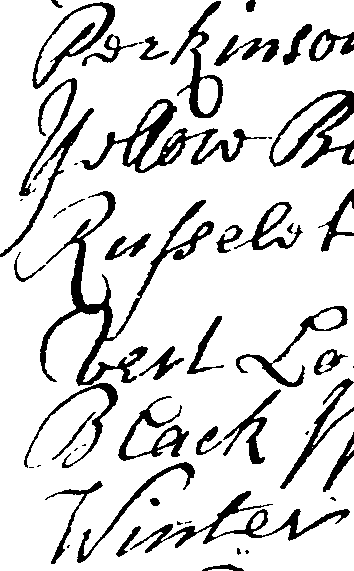 Perkinso
Yellow
Russelet
Vert Lo
Black W
Winter